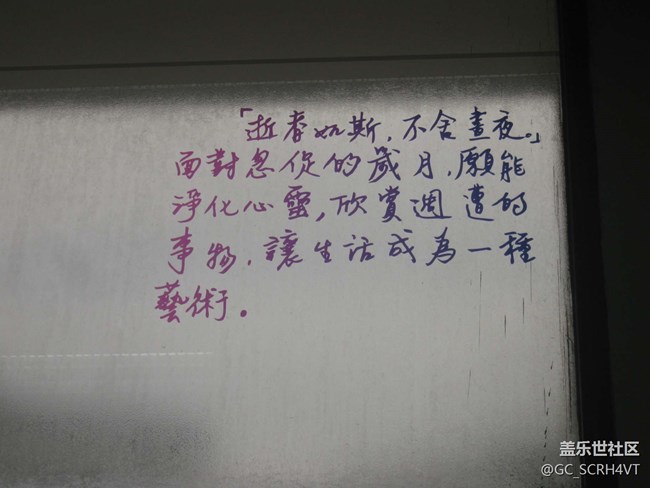 「逝者如斯，不舍晝夜。」
面對忽促的歲月，願能
淨化心靈，欣賞週遭的
事物，讓生活成為一種
藝術。
盖乐世社区
@GC_SCRH4VT